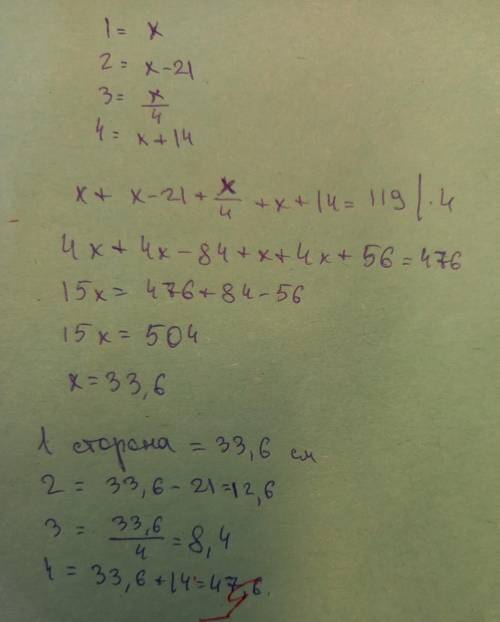 1 = x
2 = x-21
3 = x/4
4 = x+14
x + x-21 + x/4 + x + 14 = 119 | · 4
4x + 4x - 84 + x + 4x + 56 = 476
15x = 476 + 84 - 56
15x = 504
x = 33,6
1 сторона = 33,6 см
2 = 33,6 - 21 = 12,6
3 = 33,6/4 = 8,4
4 = 33,6 + 14 = 47,6.